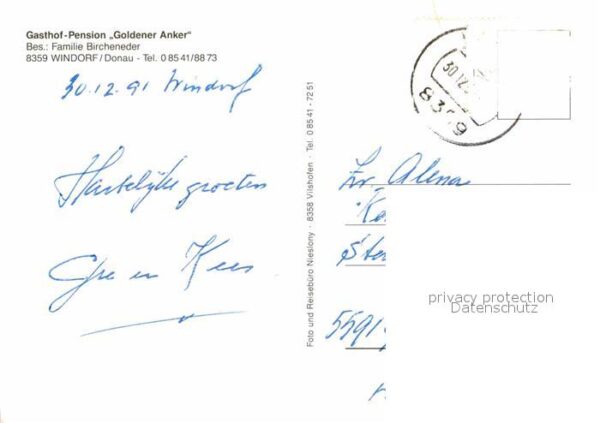 Gasthof-Pension „Goldener Anker"
Bes.: Familie Bircheneder
8359 WINDORF/Donau - Tel. 0 85 41/88 73
30.12.91 Windorf
Hartelijke groeten
Gre en Kees
Foto und Reisebüro Niesiony · 8358 Vilshofen · Tel. 0 85 41 - 72 51
30.12.
8359
Zr. Alena
Ster
5591
privacy protection
Datenschutz